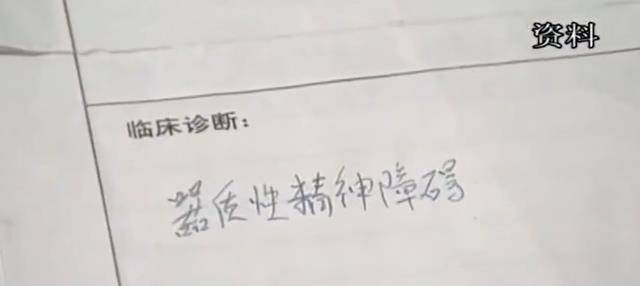 资料
临床诊断：
器质性精神障碍